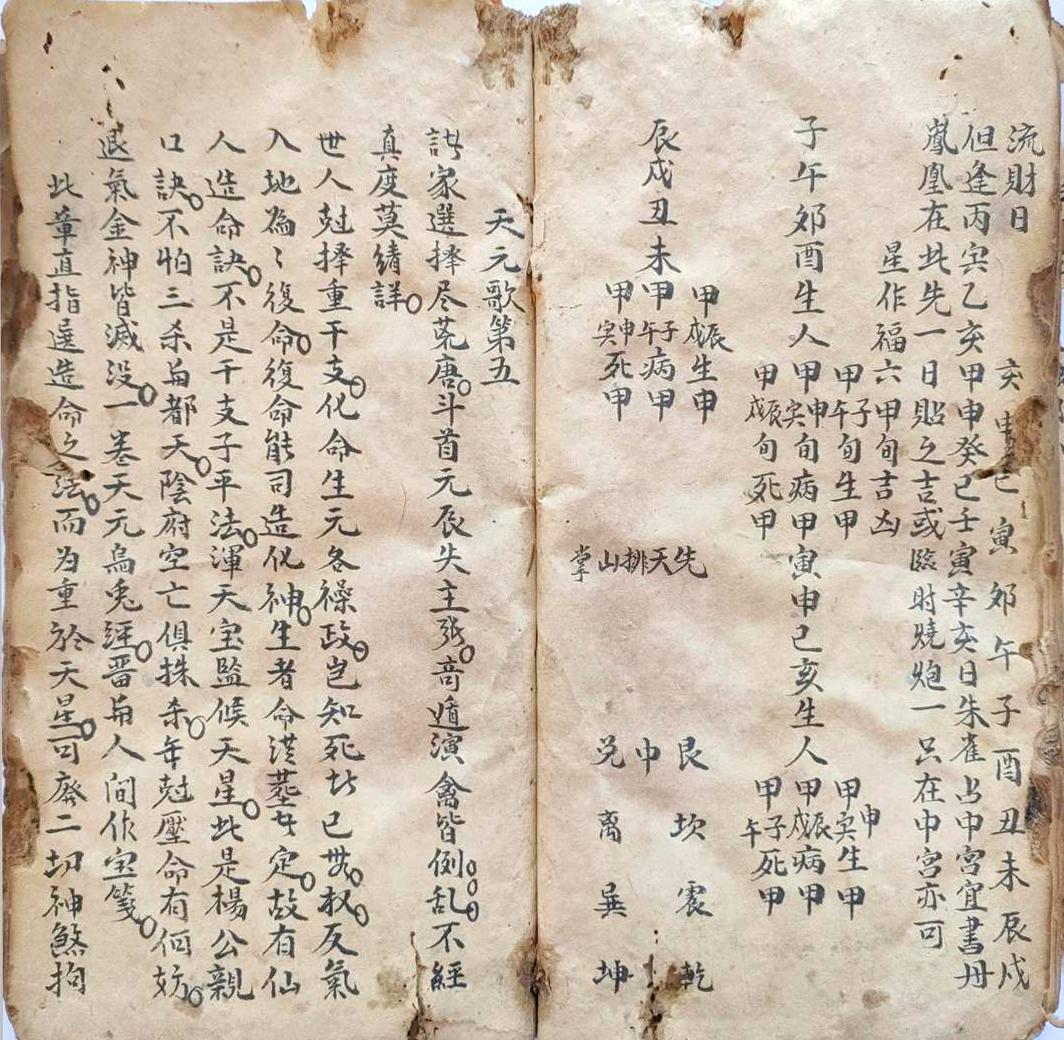 流財日
亥申巳寅夘午子酉丑未辰戌
但逢丙寅乙亥甲申癸巳壬寅辛亥日朱雀占中宮宜書丹
鳳凰在此先一日貼之吉或臨时燒炮一只在中宮亦可
星作福六甲旬吉凶
子午夘酉生人
甲午子旬生甲
甲寅申旬病甲
甲戌辰旬死甲
寅申己亥生人
甲寅申生甲
甲戌辰病甲
甲午子死甲
辰戌丑未
甲戌辰生甲
甲午子病甲
甲寅申死甲
先天排山掌
艮 坎 震 乾
中
兑 离 巽 坤
天元歌第五
諸家選擇尽荒唐斗首元辰失主張竒遁演禽皆倒乱不經
真度莫績詳
世人尅擇重干支化命生元各操政豈知死者已無权反氣
入地為〻復命復命能司造化神生者命淇塟者定故有仙
人造命訣不是干支子平法渾天宝監候天星此是楊公親
口訣不怕三杀與都天陰府空亡俱抹杀年尅壓命有何妨
退氣金神皆滅没一卷天元烏兎經晋與人間作宝箋
此章直指選造命之法而为重於天星可廢二切神煞拘